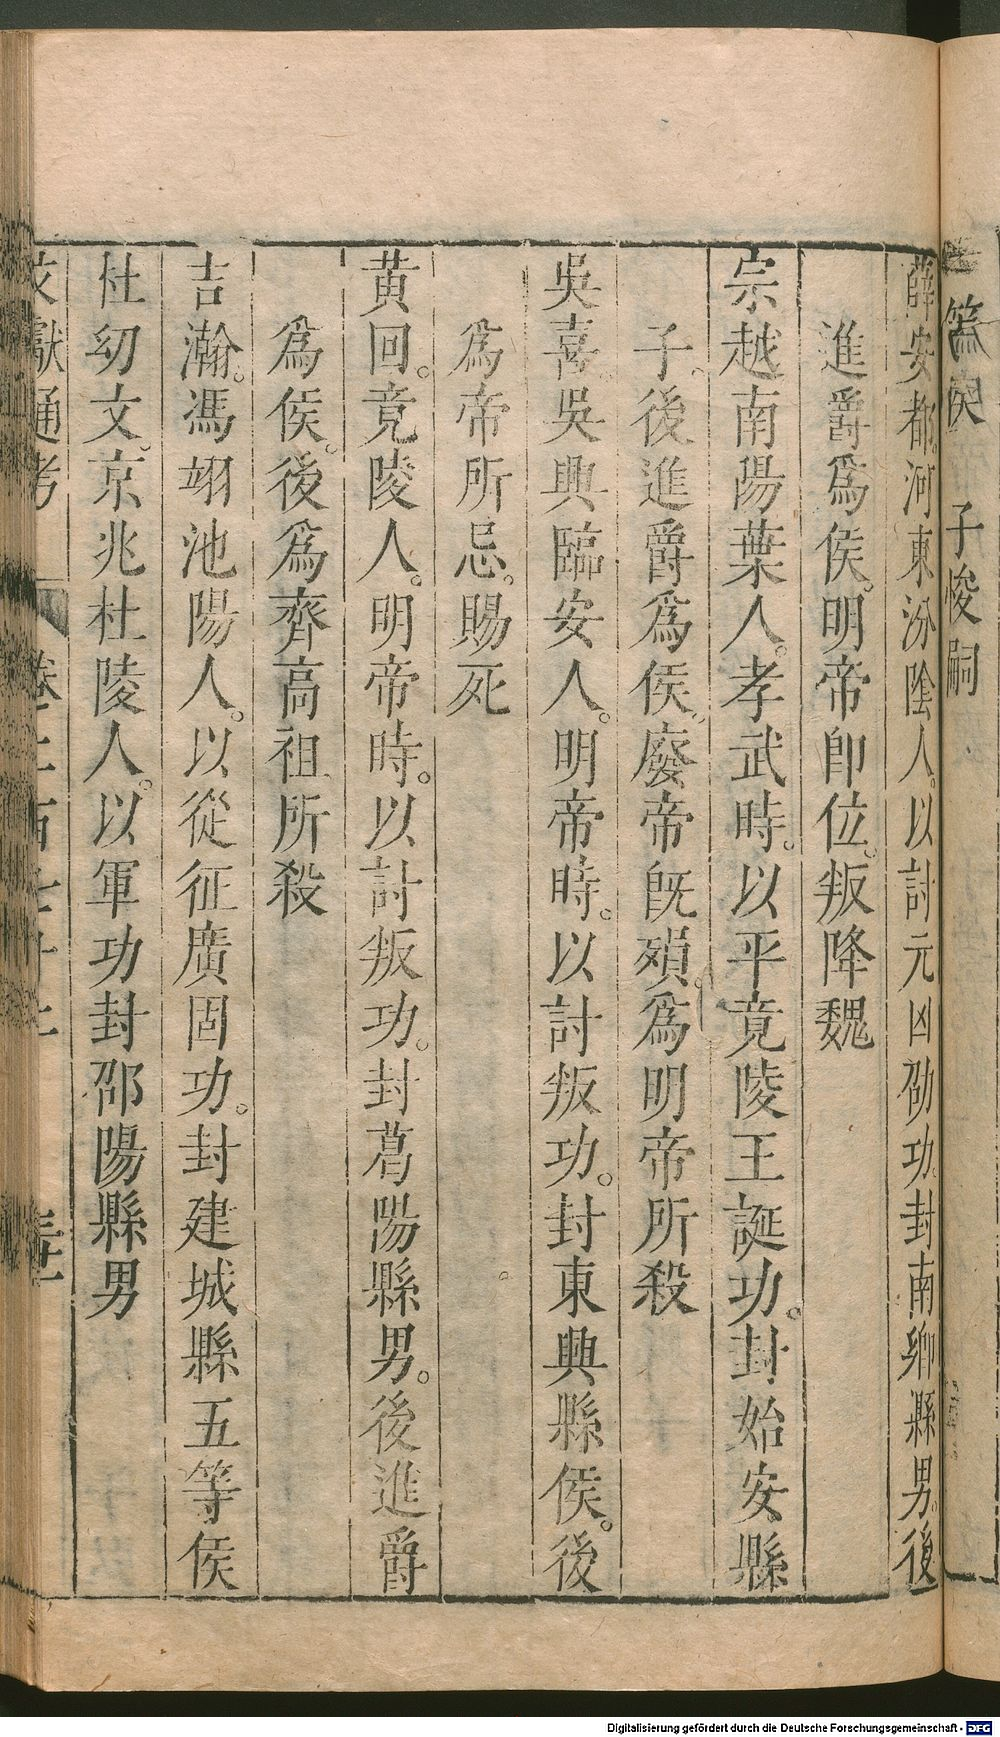 爲侯　子悛嗣
薛安都河東汾陰人。以討元凶劭功。封南鄉縣男。後
進爵爲侯。明帝卽位。叛降魏
宗越南陽葉人。孝武時。以平竟陵王誕功。封始安縣
子。後進爵爲侯。廢帝旣殞爲明帝所殺
吳喜。吳興臨安人。明帝時。以討叛功。封東興縣侯。後
爲帝所忌。賜死
黃回。竟陵人。明帝時。以討叛功。封葛陽縣男。後進爵
爲侯。後爲齊高祖所殺
吉瀚。馮翊池陽人。以從征廣固功。封建城縣五等侯
杜幼文。京兆杜陵人。以軍功封邵陽縣男
文獻通考　卷二百七十二　三十二
Digitalisierung gefördert durch die Deutsche Forschungsgemeinschaft - DFG